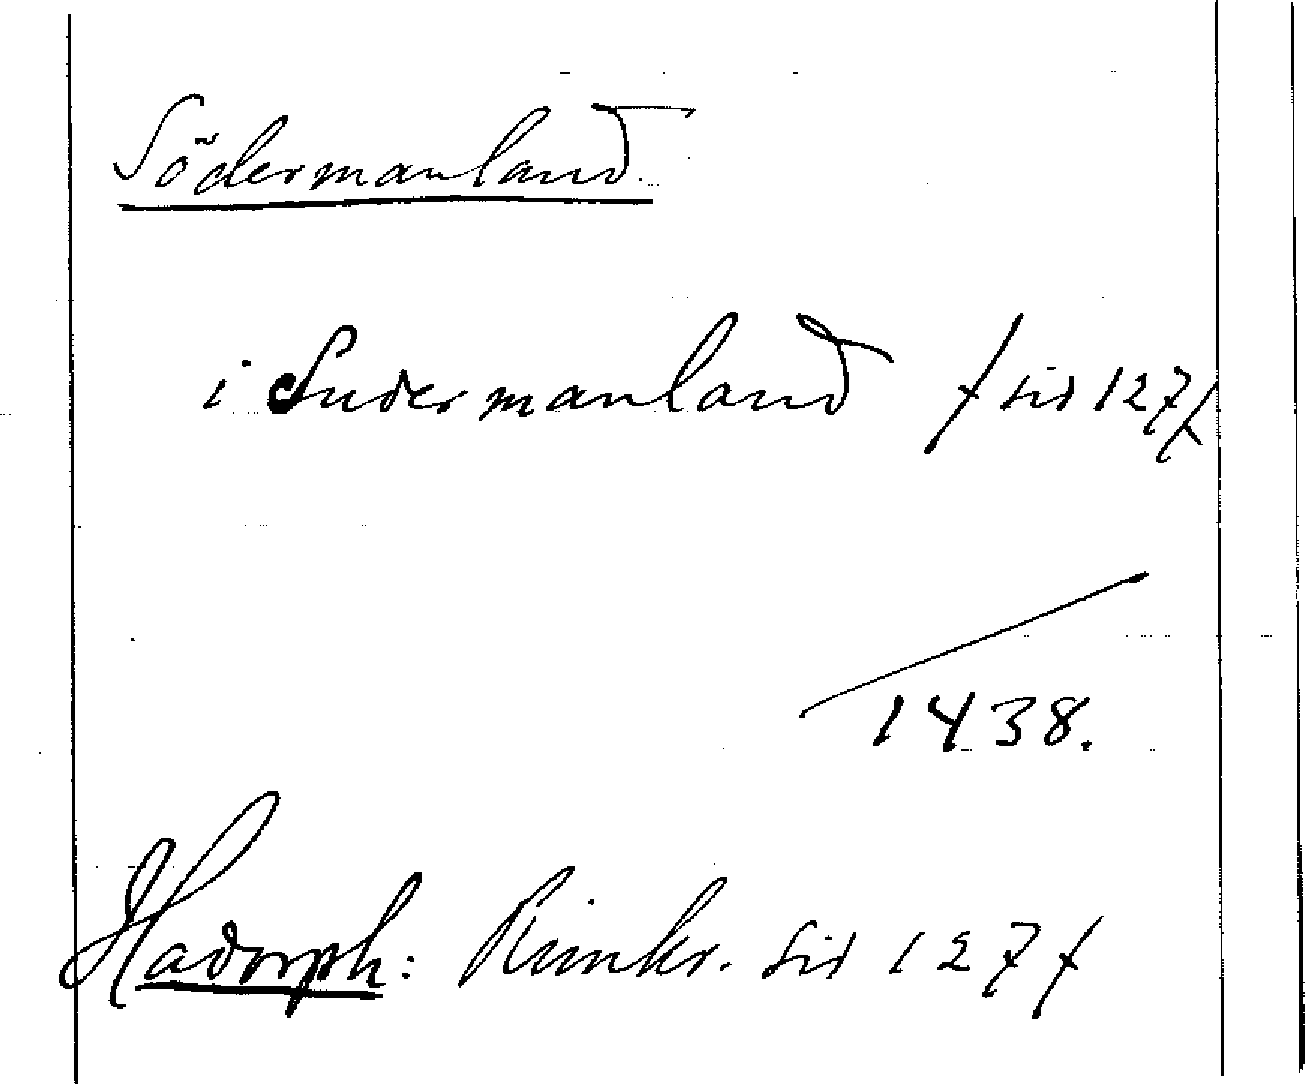 Södermanland
i Sudermanland / sid 127/
1438.
Hadorph: Rimkr. sid 127 f